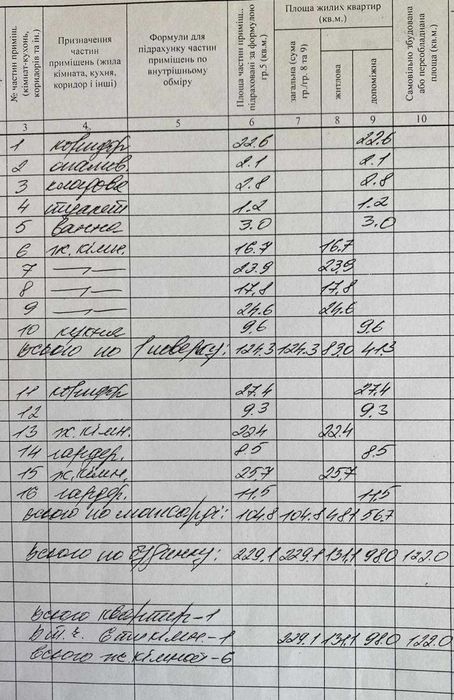 № частин приміщ. (кімнат-кухонь, коридорів та ін.) Призначення частин приміщень (жила кімната, кухня, коридор і інші) Формули для підрахунку частин приміщень по внутрішньому обміру Площа частин приміщ., підраховані за формулою гр.5 (кв.м.) Площа жилих квартир (кв.м.) загальна (сума гр./гр. 8 та 9) житлова допоміжна Самовільно збудована або переобладнана площа (кв.м.)
3 4 5 6 7 8 9 10
1 коридор 22.6 22.6
2 2.1 2.1
3 кладова 2.8 2.8
4 туалет 1.2 1.2
5 ванна 3.0 3.0
6 ж.кімн. 16.7 16.7
7 —"— 23.9 23.9
8 —"— 17,8 17,8
9 —"— 24.6 24.6
10 кухня 9.6 9.6
Всього по 1 поверху: 124.3 124.3 83.0 41.3
11 коридор 27.4 27.4
12 9.3 9.3
13 ж.кімн. 22.4 22.4
14 гардер. 8.5 8.5
15 ж.кімн. 25.7 25.7
16 гардер. 11,5 11,5
Всього по мансарді: 104.8 104.8 48.1 56.7
Всього по будинку: 229.1 229.1 131.1 98.0 122.0
Всього квартир-1
В т.ч. 6тикімн.-1 229.1 131,1 98.0 122.0
Всього ж.кімнат-6